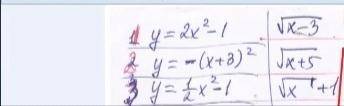 1 y = 2x² - 1 √x-3
2 y = -(x+3)² √x+5
3 y = ½x² - 1 √x + 1